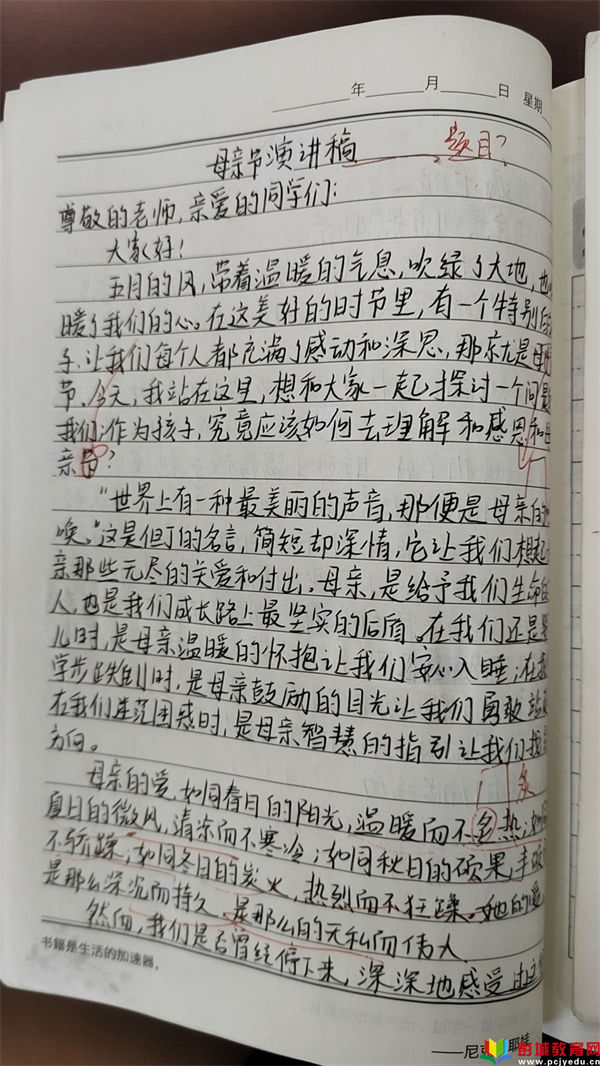 年 月 日 星期
母亲节演讲稿 题目?
尊敬的老师,亲爱的同学们:
大家好!
五月的风,带着温暖的气息,吹绿了大地,也
暖了我们的心。在这美好的时节里,有一个特别
子,让我们每个人都充满了感动和深思,那就是母
节。今天,我站在这里,想和大家一起探讨一个问题
我们作为孩子,究竟应该如何去理解和感恩和母
亲节?
“世界上有一种最美丽的声音,那便是母亲的
唤。”这是但丁的名言,简短却深情,它让我们想起
亲那些无尽的关爱和付出。母亲,是给予我们生命的
人,也是我们成长路上最坚实的后盾。在我们还是
儿时,是母亲温暖的怀抱让我们安心入睡;在我
学步跌倒时,是母亲鼓励的目光让我们勇敢站
在我们迷茫困惑时,是母亲智慧的指引让我们找
方向。
母亲的爱,如同春日的阳光,温暖而不 热;如同
炙
夏日的微风,清凉而不寒冷;如同秋日的硕果,丰
不骄躁;如同冬日的炭火,热烈而不狂躁。她的爱
是那么深沉而持久,是那么的无私而伟大
然而,我们是否曾经停下来,深深地感受过
书籍是生活的加速器。
——尼
彭城教育网
www.pcjyedu.cn